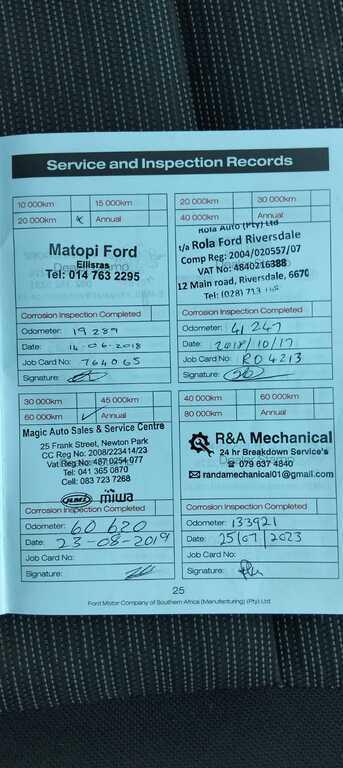 Service and Inspection Records
10 000km 15 000km
20 000km Annual
Matopi Ford
Ellisras
Tel: 014 763 2295
Corrosion Inspection Completed
Odometer: 19 289
Date: 14-06-2018
Job Card No: 764065
Signature:
20 000km 30 000km
40 000km Annual
Rola Auto (Pty) Ltd
t/a Rola Ford Riversdale
Comp Reg: 2004/020557/07
VAT No: 4840216388
12 Main road, Riversdale, 6670
Tel: (028) 713
Corrosion Inspection Completed
Odometer: 41 247
Date: 2018/10/17
Job Card No: RO4213
Signature:
30 000km 45 000km
60 000km Annual
Magic Auto Sales & Service Centre
25 Frank Street, Newton Park
CC Reg No: 2008/223414/23
Vat Reg No: 487 0254 077
Tel: 041 365 0870
Cell: 083 723 7268
RMI miwa
Corrosion Inspection Completed
Odometer: 60 620
Date: 23-08-2019
Job Card No:
Signature:
40 000km 60 000km
80 000km Annual
R&A Mechanical
24 hr Breakdown Service's
079 637 4840
randamechanical01@gmail.com
Corrosion Inspection Completed
Odometer: 133921
Date: 25/07/2023
Job Card No:
Signature:
25
Ford Motor Company of Southern Africa (Manufacturing) (Pty) Ltd